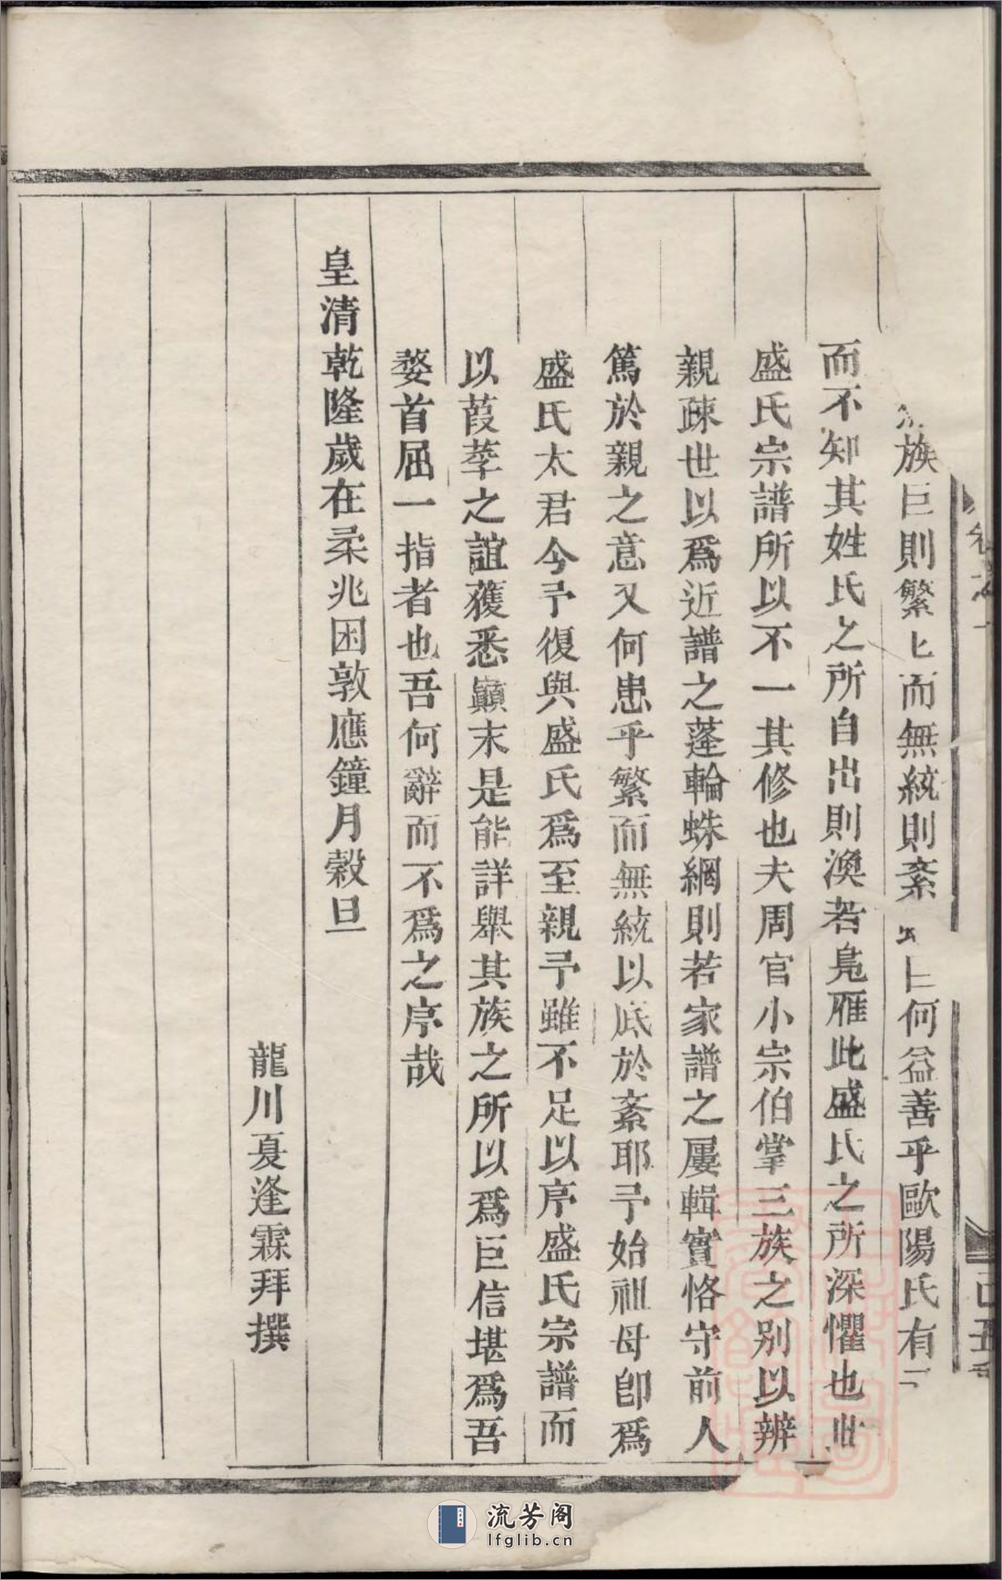 族巨則繁匕而無統則紊何益善乎歐陽氏有
而不知其姓氏之所自出則渙若鳧雁此盛氏之所深懼也此
盛氏宗譜所以不一其修也夫周官小宗伯掌三族之别以辨
親疎世以爲近譜之蓬輪蛛網則若家譜之屢輯實恪守前人
篤於親之意又何患乎繁而無統以底於紊耶予始祖母卽爲
盛氏太君今予復與盛氏爲至親予雖不足以序盛氏宗譜而
以葭莩之誼獲悉巔末是能詳舉其族之所以爲巨信堪爲吾
婺首屈一指者也吾何辭而不爲之序哉
皇清乾隆歲在柔兆困敦應鐘月穀旦
龍川夏逢霖拜撰
流芳阁
lfglib.cn